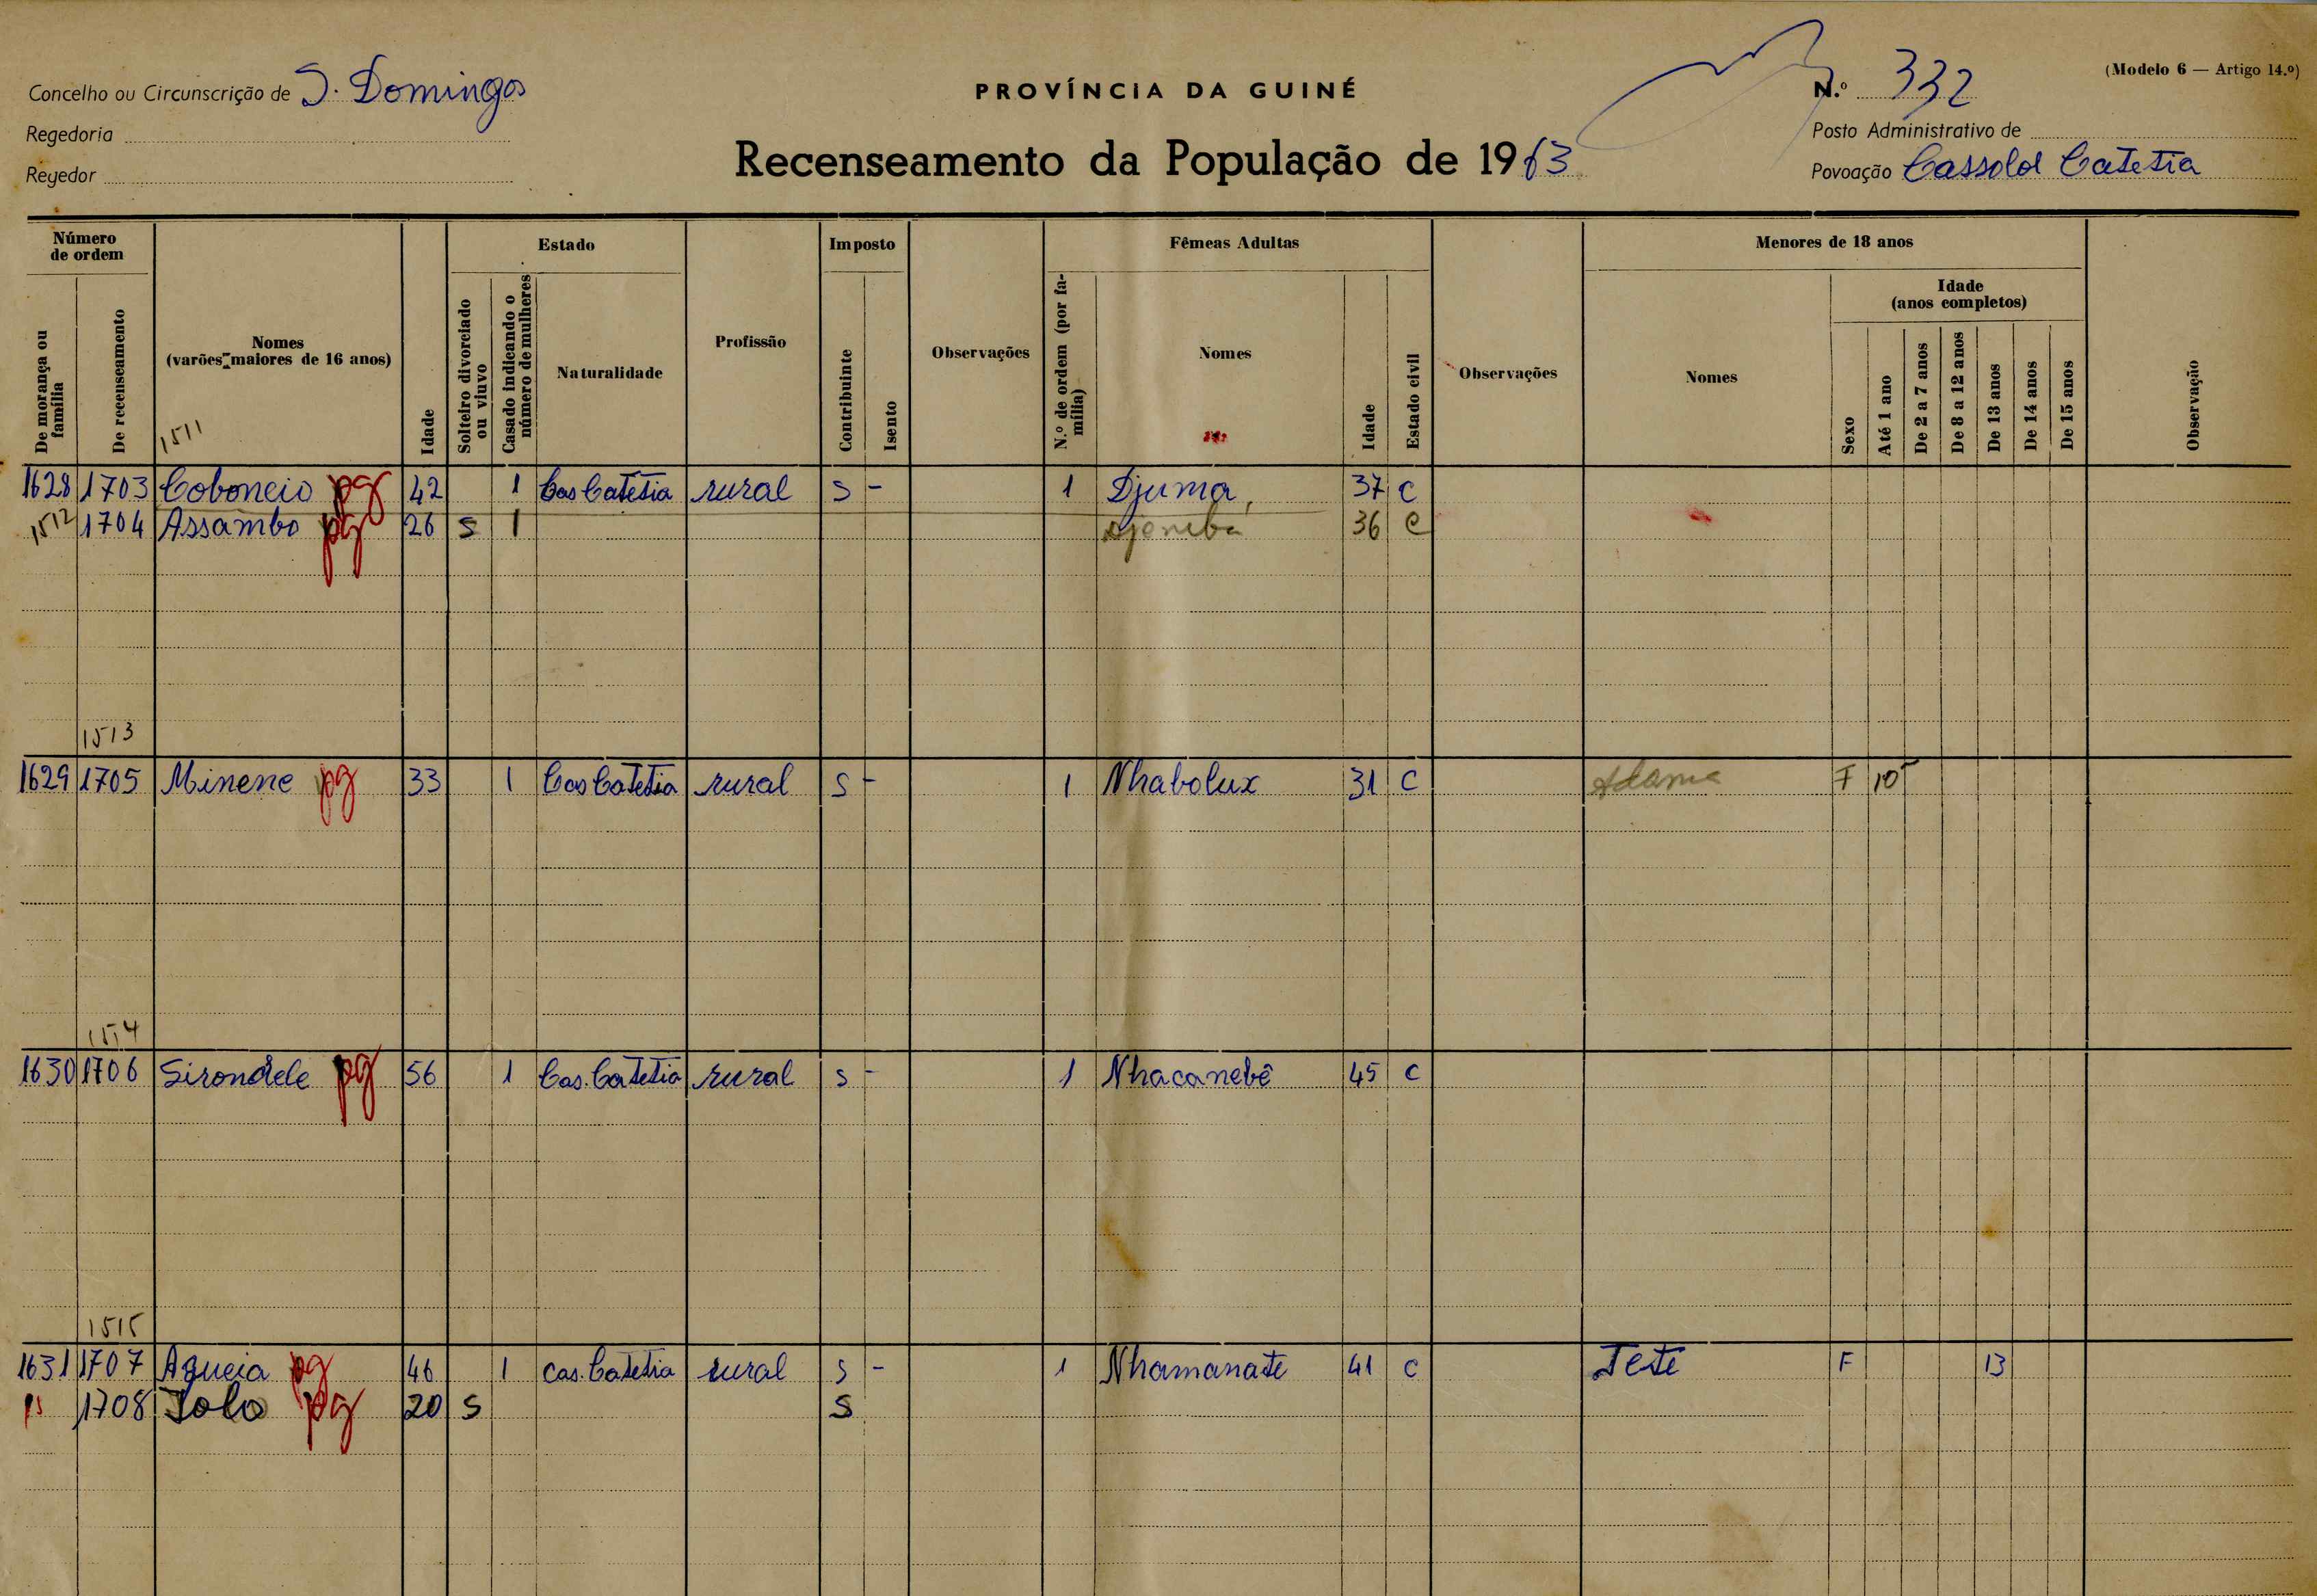 (Modelo 6 — Artigo 14.º)
Concelho ou Circunscrição de S. Domingos
PROVÍNCIA DA GUINÉ
N.º 332
Regedoria
Posto Administrativo de
Recenseamento da População de 1963
Regedor
Povoação Cassolol Catetia
Número de ordem
Estado
Imposto
Fêmeas Adultas
Menores de 18 anos
De morança ou família
De recenseamento
Nomes
(varões maiores de 16 anos)
Idade
Solteiro divorciado ou viuvo
Casado indicando o número de mulheres
Naturalidade
Profissão
Contribuinte
Isento
Observações
N.º de ordem (por família)
Nomes
Idade
Estado civil
Observações
Nomes
Sexo
Idade
(anos completos)
Até 1 ano
De 2 a 7 anos
De 8 a 12 anos
De 13 anos
De 14 anos
De 15 anos
Observação
1511
1628 1703 Coboneio pg 42 1 Cas Catetia rural S - 1 Djuma 37 C
1512 1704 Assambo pg 26 S 1 Djenibá 36 C
1513
1629 1705 Minene pg 33 1 Cas Catetia rural S - 1 Nhabolux 31 C Adama F 10
1514
1630 1706 Sirondele pg 56 1 Cas. Catetia rural S - 1 Nhacanebê 45 C
1515
1631 1707 Agueia pg 46 1 Cas. Catetia rural S - 1 Nhamanate 41 C Tete F 13
1708 Jolo pg 20 S S